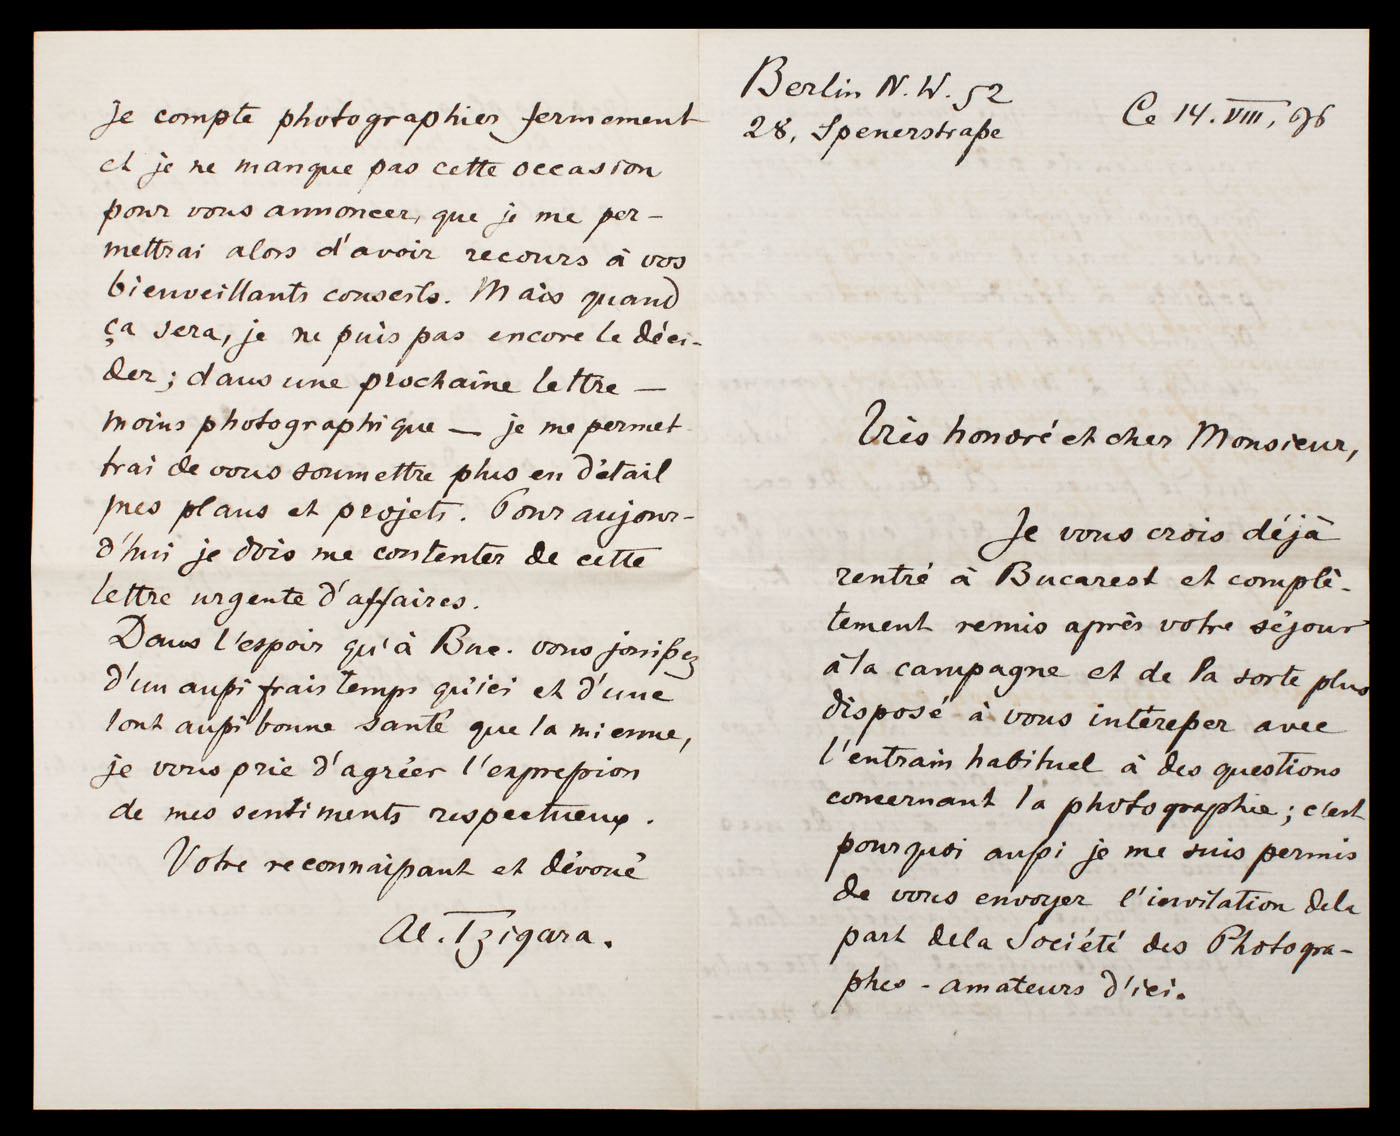 Berlin N.W. 52
28, Spenerstraße
Ce 14. VIII, 96
Très honoré et cher Monsieur,
Je vous crois déjà
rentré à Bucarest et complè-
tement remis après votre séjour
à la campagne et de la sorte plus
disposé à vous intéreßer avec
l'entrain habituel à des questions
concernant la photographie; c'est
pourquoi außi je me suis permis
de vous envoyer l'invitation de la
part de la Société des Photogra-
phes-amateurs d'ici.
Je compte photographier fermement
et je ne manque pas cette occasion
pour vous annoncer, que je me per-
mettrai alors d'avoir recours à vos
bienveillants conseils. Mais quand
ça sera, je ne puis pas encore le déci-
der; dans une prochaine lettre —
moins photographique — je me permet-
trai de vous soumettre plus en détail
mes plans et projets. Pour aujour-
d'hui je dois me contenter de cette
lettre urgente d'affaires.
Dans l'espoir qu'à Buc. vous jouißez
d'un außi frais temps qu'ici et d'une
tout außi bonne santé que la mienne,
je vous prie d'agréer l'expreßion
de mes sentiments respectueux.
Votre reconnaißant et dévoué
Al. Tzigara.